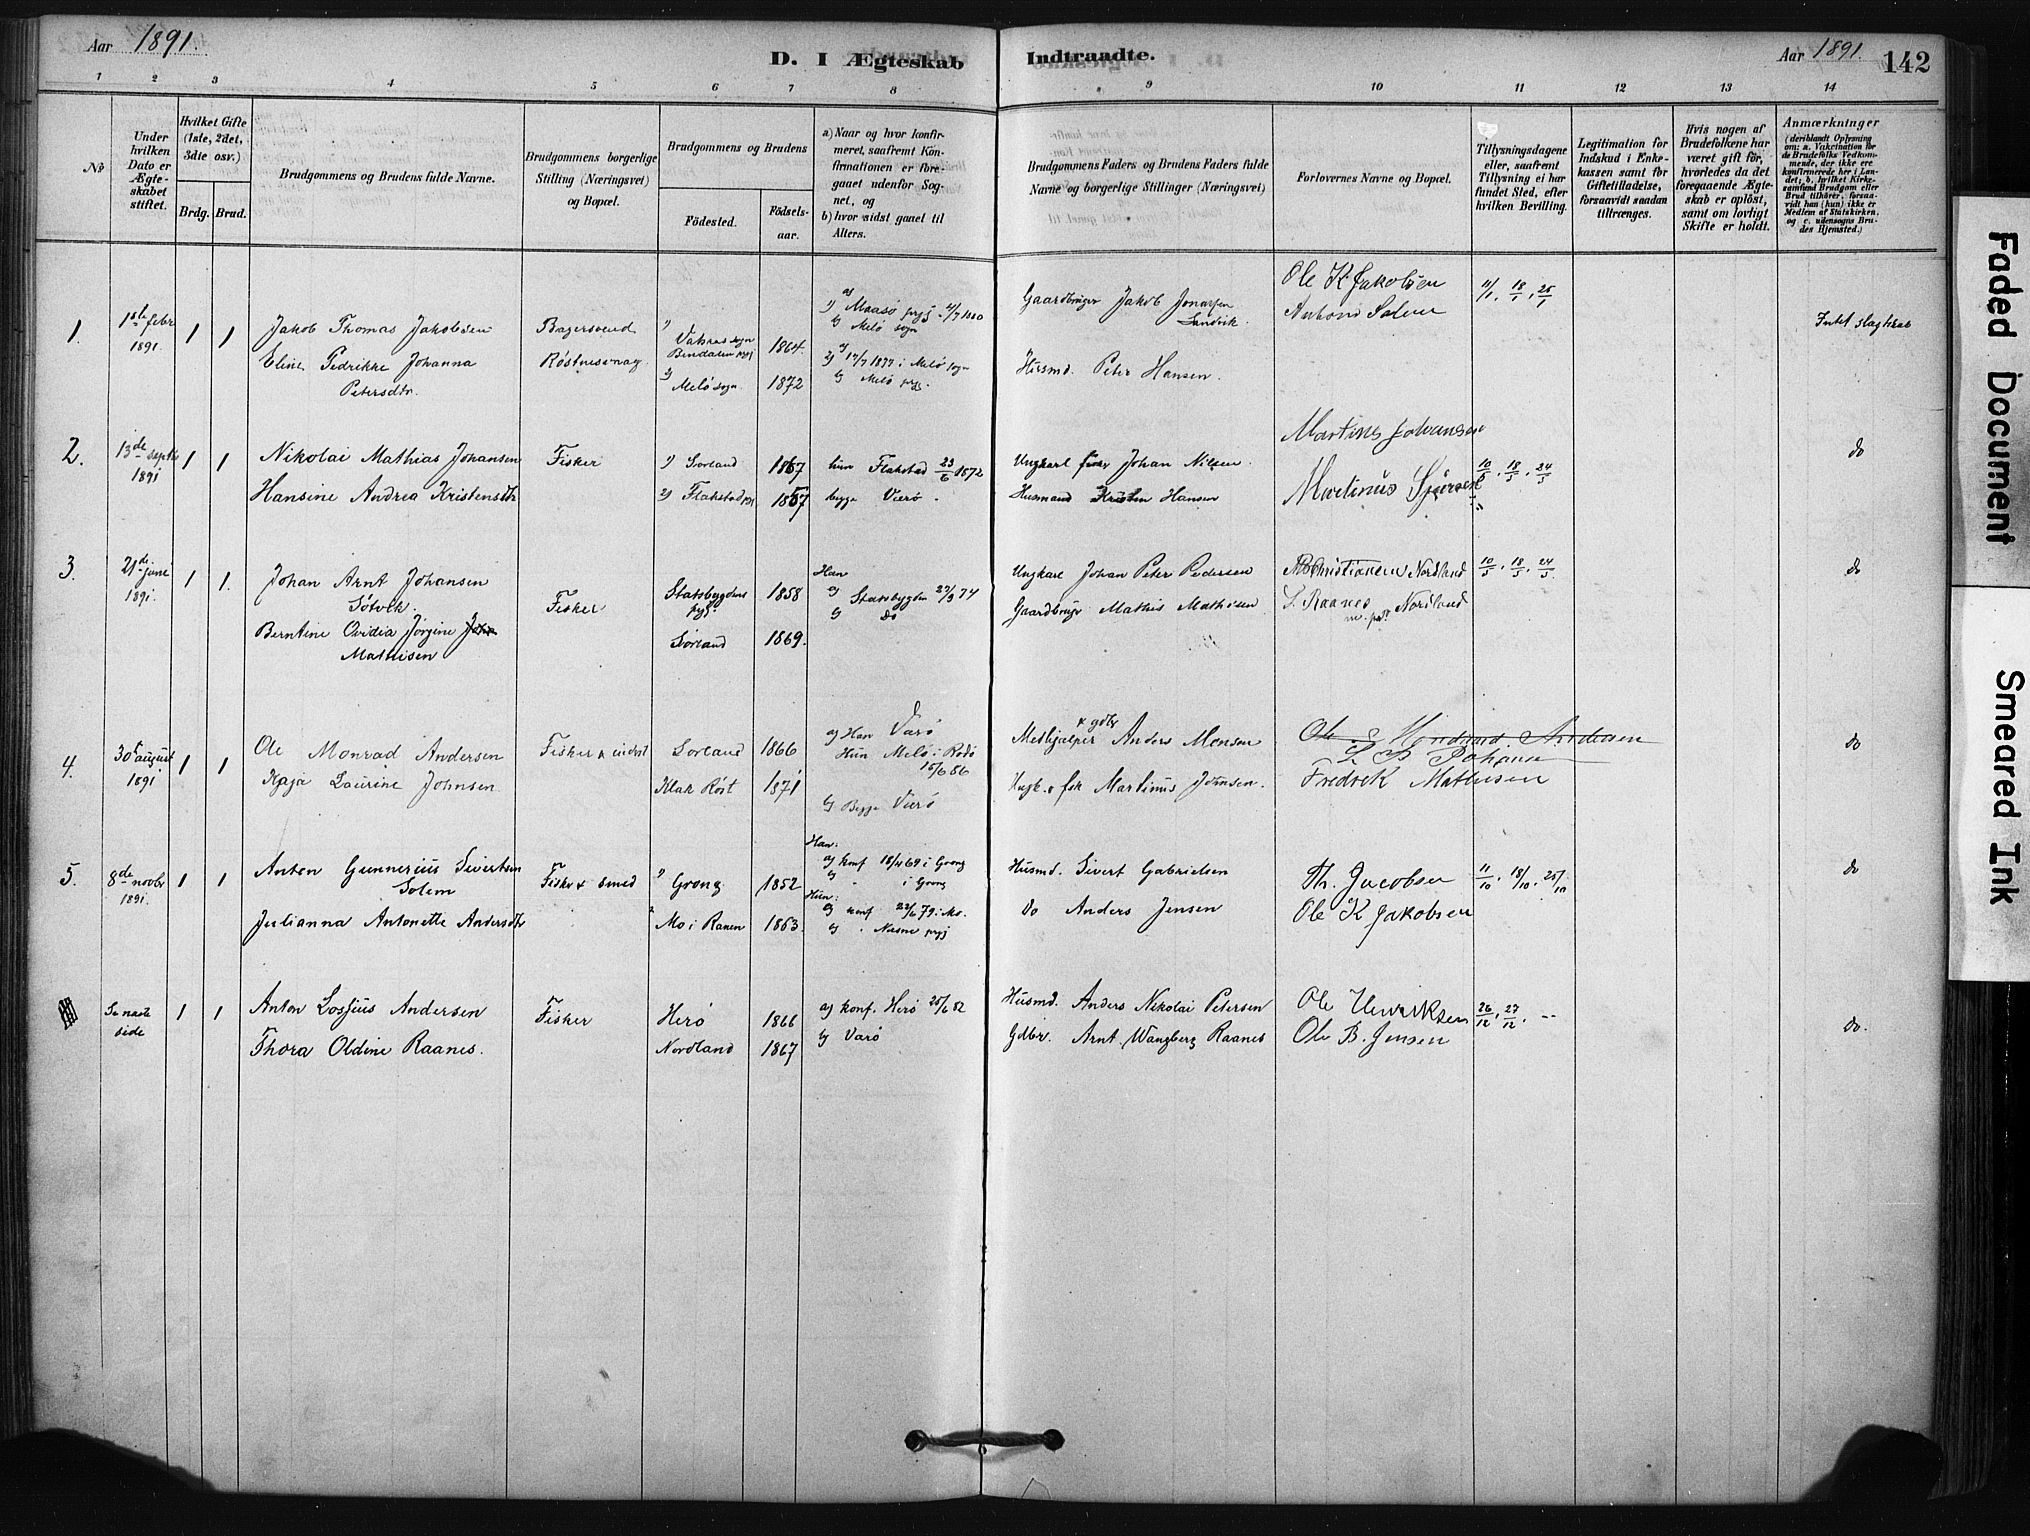 Aar 1891.
D. I Ægteskab Indtraadte.
Aar 1891. 142
1 2 3 4 5 6 7 8 9 10 11 12 13 14
No
Under hvilken Dato er Ægteskabet stiftet.
Hvilket Gifte (1ste, 2det, 3die osv.)
Brdg. Brud.
Brudgommens og Brudens fulde Navne.
Brudgommens borgerlige Stilling (Næringsvei) og Bopæl.
Brudgommens og Brudens
Födested. Födselsaar.
a) Naar og hvor konfirmeret, saafremt Konfirmationen er foregaaet udenfor Sognet, og
b) hvor sidst gaaet til Alters.
Brudgommens Faders og Brudens Faders fulde Navne og borgerlige Stillinger (Næringsvei)
Forlovernes Navne og Bopæl.
Tillysningsdagene eller, saafremt Tillysning ei har fundet Sted, efter hvilken Bevilling.
Legitimation for Indskud i Enkekassen samt for Giftetilladelse, forsaavidt saadan tiltrænges.
Hvis nogen af Brudefolkene har været gift för, hvorledes da det foregaaende Ægteskab er oplöst, samt om lovligt Skifte er holdt.
Anmærkninger
(deriblandt Oplysning om: a. Vakcination for de Brudefolks Vedkommende, der ikke ere konfirmerede her i Landet; b. hvilket Kirkesamfund Brudgom eller Brud tilhörer, forsaavidt han (hun) ikke er Medlem af Statskirken, og c. udensogns Brudes Hjemsted.)
1. 1ste febr 1891 1 1 Jakob Thomas Jakobsen Bagersvend 1864 Gaardbruger Jakob Sandvik Ole K Jakobsen 11/1, 18/1, 25/1
Eline Fredrikke Johanna Petersdtr. 2) Melö sogn 1872 Husmd. Peter Hansen. Anton Solem
2. 13de septbr 1891 1 1 Nikolai Mathias Johansen Fisker 1) Sörland 1867 hun Flakstad 23/6 1872 Ungkarl fisker Johan Nilsen Martines Johansen do
Hansine Andrea Kristensdtr 2) Flakstad 1857 begge Værö. Husmand Kristen Hansen Martinus 10/5, 18/5, 24/5
3. 21de juni 1891. 1 1. Johan Arnt Johansen Fisker Stadsbygdens prgj 1858 Han a) Stadsbygden 74 b) do Ungkarl Johan Peter Pedersen Christiansen Nordland 10/5, 18/5, 24/5 do
Berntine Ovidia Jörgine Mathisen Sörland 1869. Gaardbruger Mathis Mathisen Raanes Nordland
4. 30t august 1891 1 1 Ole Monrad Andersen Fisker & inderst Sörland 1866 a) Han Værö Hun Melö i Rödö 15/6 86 Medhjælper & gdbr Anders Monsen Ole Monrad Andersen do
Kaja Laurine Johnsen Klak Röst 1871 b) Begge Værö Martinus Johnsen. Fredrik Mathisen
5. 8de novbr 1891. 1 1 Anton Gunnerius Sivertsen Solem Fisker & smed 1) Grong 1852 Han: a) konf 18/4 69 i Grong b) " i Grong Husmd. Sivert Gabrielsen Th. Jacobsen 11/10, 18/10, 25/10 do
Julianna Antonette Andersdtr 2 Mo i Ranen 1863 Hun: a) konf 22/6 79 i Mo. b) " Næsne prgj do Anders Jensen Ole K Jakobsen
Se næste side 1 1 Anton Losjius Andersen Fisker Herö 1866 a) konf. Herö 25/6 82 b) Værö Husmd. Anders Nikolai Petersen Ole Henriksen 26/12, 27/12, -- do.
Thora Oldine Raanes. Nordland 1867 Gdbr. Arnt Wangberg Raanes Ole B. Jensen
Faded Document
Smeared Ink